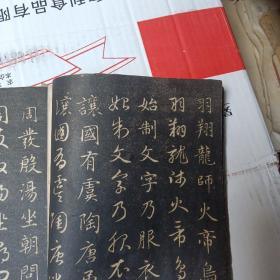 食品有限
羽翔龍師火帝鳥
羽翔龍師火帝鳥
始制文字乃服衣
始制文字乃服衣
讓國有虞陶唐
讓國有虞陶唐
周發殷湯坐朝問
周發殷湯坐朝問